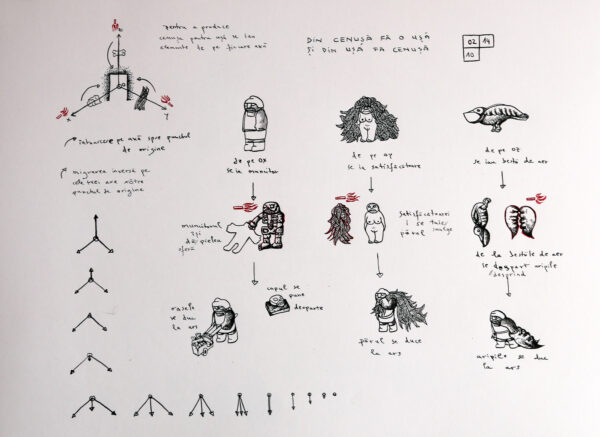 pentru a produce
cenușa pentru ușă se iau
elemente de pe fiecare axă
DIN CENUȘĂ FĂ O UȘĂ
ȘI DIN UȘĂ FĂ CENUȘĂ
02 14
10
z
x
y
întoarcere pe axă spre punctul
de origine
migrarea inversă pe
cele trei axe către
punctul de origine
de pe OX
se ia muncitor
de pe OY
se ia satisfăcătoare
de pe OZ
se iau bestii de aer
muncitorul
își
dă pielea
afară
satisfăcătoarei
i se taie
smulge
părul
de la bestiile de aer
se despart aripile
desprind
oasele
se duc
la ars
capul se
pune
deoparte
părul se duce
la ars
aripile se duc
la ars